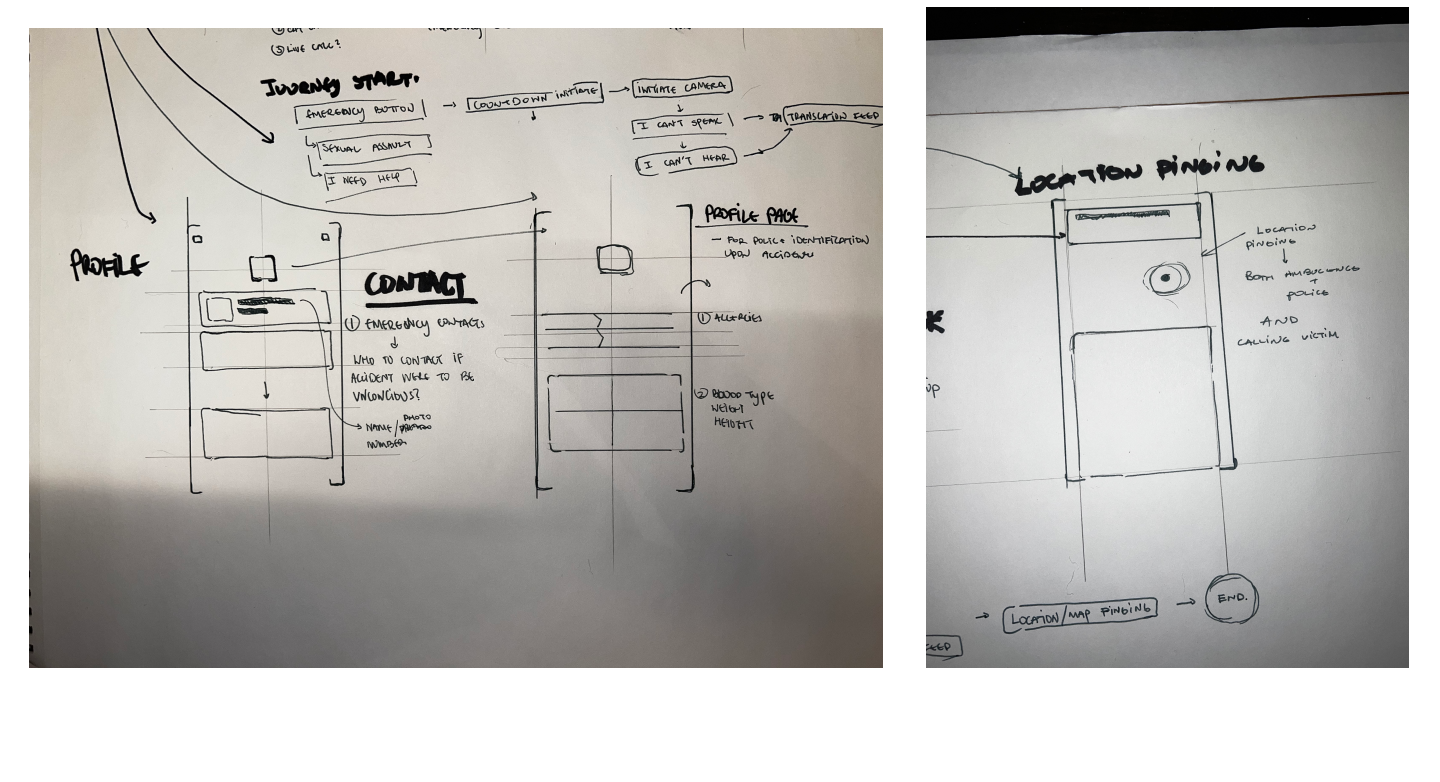 ③ LIVE CALL?
JOURNEY START.
EMERGENCY BUTTON
SEXUAL ASSAULT
I NEED HELP
COUNTDOWN INITIATE
INITIATE CAMERA
I CAN'T SPEAK
I CAN'T HEAR
TRANSLATION FEED
PROFILE
CONTACT
① EMERGENCY CONTACTS
WHO TO CONTACT IF
ACCIDENT WERE TO BE
UNCONCIOUS?
NAME/PHOTO
NUMBER
PROFILE PAGE
— FOR POLICE IDENTIFICATION
UPON ACCIDENT
① ALLERGIES
② BLOOD TYPE
WEIGHT
HEIGHT
LOCATION PINGING
LOCATION
PINGING
BOTH AMBULANCE
+
POLICE
AND
CALLING VICTIM
LOCATION/MAP PINGING
END.